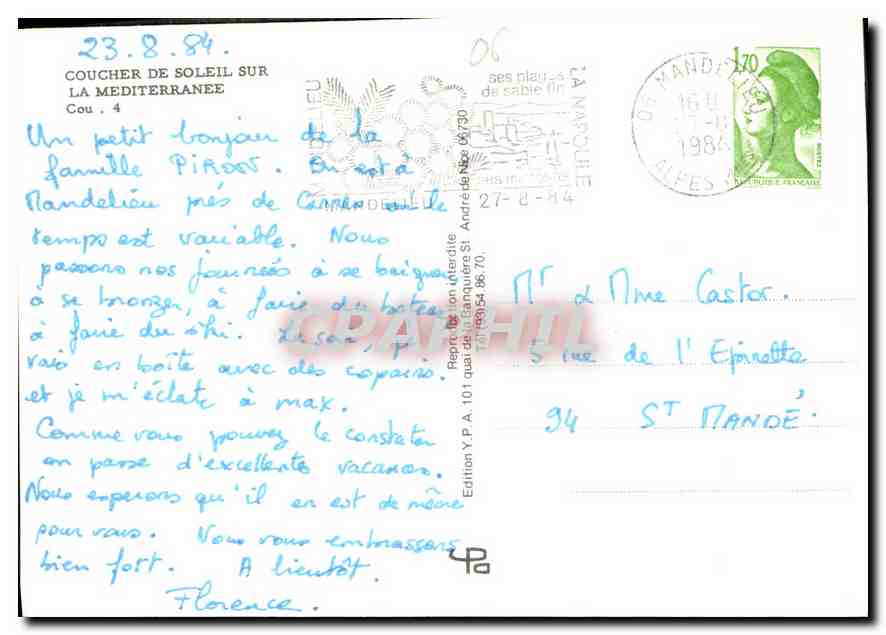 23.8.84.
COUCHER DE SOLEIL SUR
LA MEDITERRANEE
Cou . 4
Un petit bonjour de la
famille PIRON. On est à
Mandelieu près de Cannes où le
temps est variable. Nous
passons nos journées à se baigner
à se bronzer, à faire du bateau
à faire du ski. Le soir, je
vais en boîte avec des copains.
et je m'éclate à max.
Comme vous pouvez le constater
on passe d'excellentes vacances.
Nous esperons qu'il en est de même
pour vous. Nous vous embrassons
bien fort. A bientôt.
Florence.
06
MANDELIEU
ses plages
de sable fin
LA NAPOULE
MANDELIEU
27-8-84
06 MANDELIEU
16 H
27-8
1984
ALPES
1,70
REPUBLIQUE FRANÇAISE
Edition Y.P.A. 101 quai de la Banquière St André de Nice 06730
Tél (93) 54.86.70.
Reproduction interdite
YPA
CPAPHIL
Mr & Mme Castor.
5 rue de l'Epinette
94 ST MANDÉ.